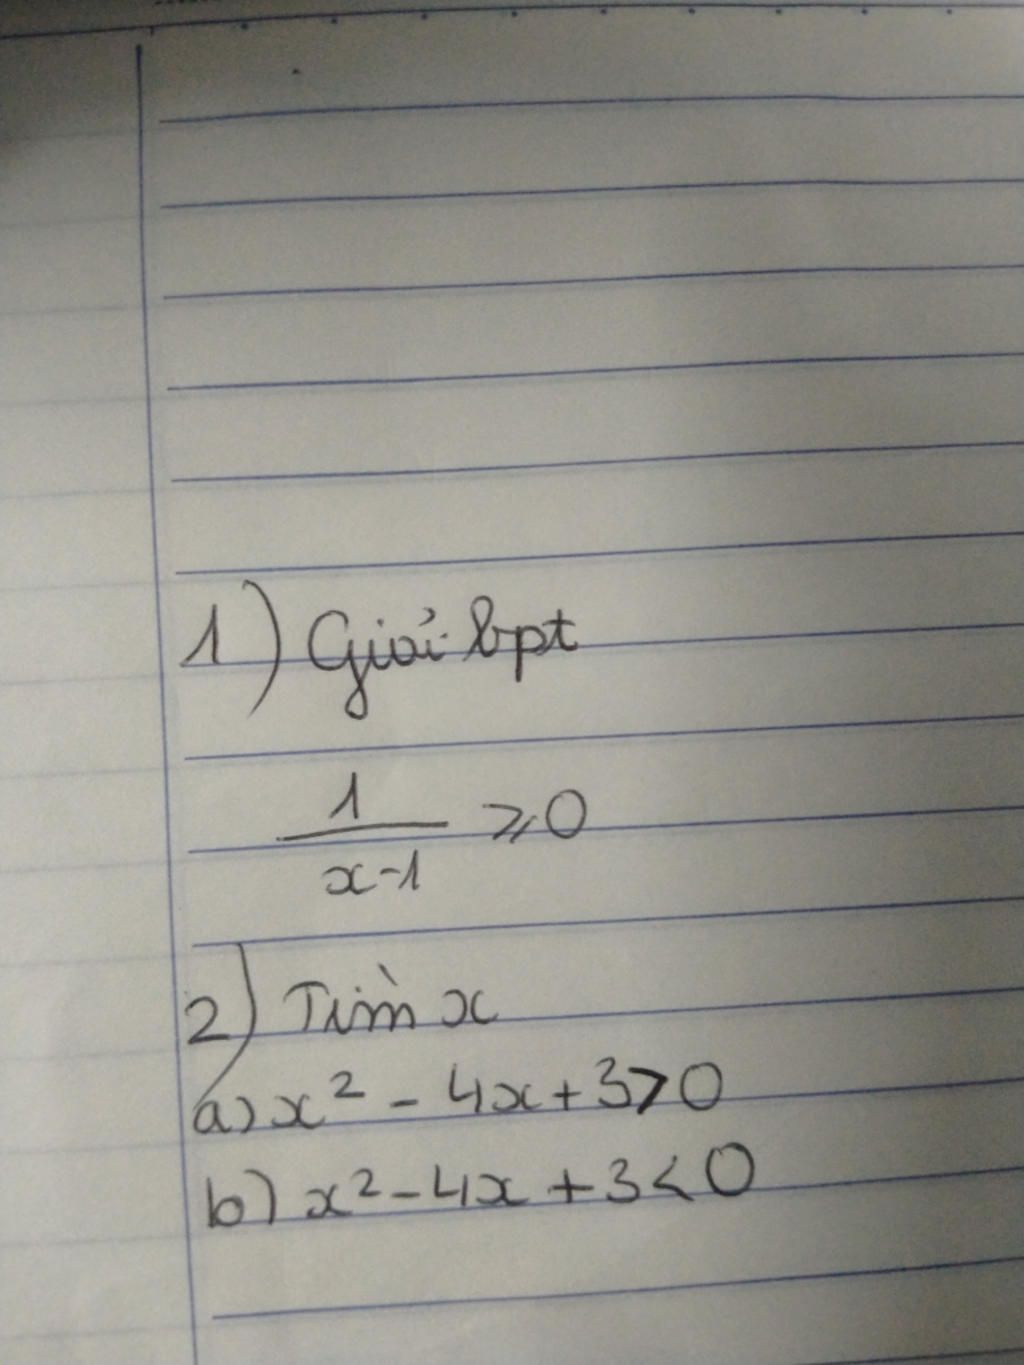 1) Giải bpt
1/(x-1) ⩾ 0
2) Tìm x
a) x² - 4x + 3 > 0
b) x² - 4x + 3 < 0